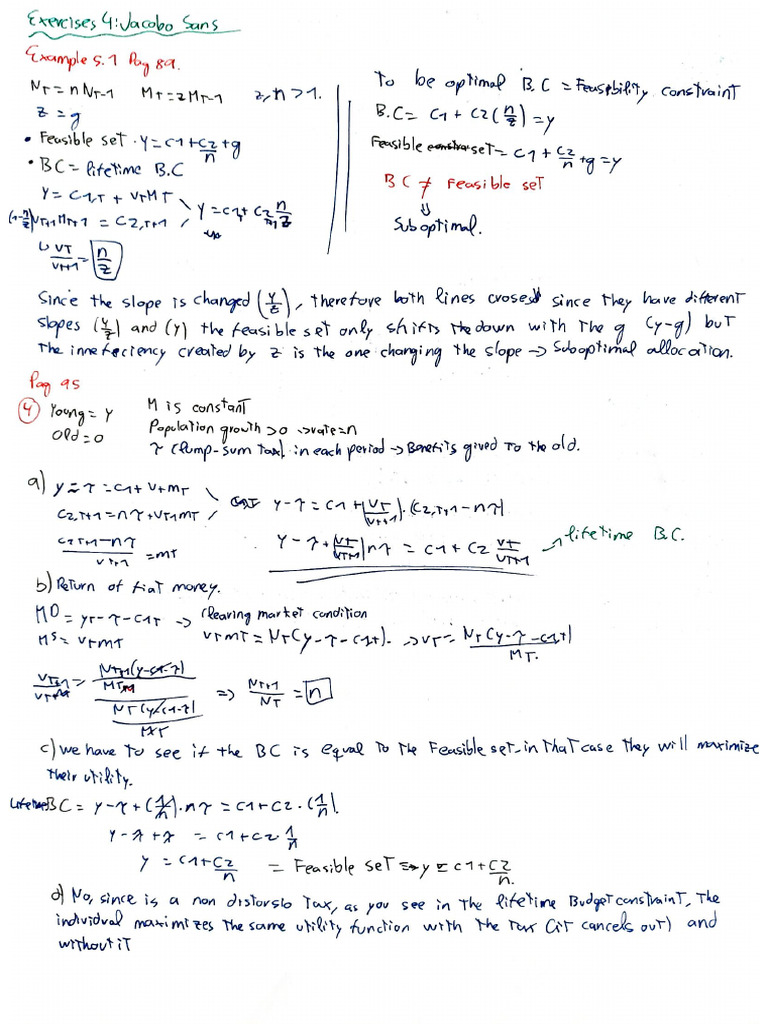 Exercises 4: Jacobo Sans
Example 5.1 Pag 89.
N_T = n N_T-1   M_T = z M_T-1   z, n > 1.
z = g
• Feasible set · y = c1 + c2/n + g
• BC = lifetime B.C
y = c1,T + v_T m_T
v_T+1 m_T+1 = c2,T+1
y = c1 + c2 n/z
↳ v_T/v_T+1 = n/z
To be optimal B.C = Feaspbility constraint
B.C = c1 + c2 (n/z) = y
Feasible set = c1 + c2/n + g = y
BC ≠ Feasible set
⇓
Suboptimal.
Since the slope is changed (y/z), therefore both lines croses since they have different
slopes (y/z) and (y) the feasible set only shifts down with the g (y-g) but
the inneficiency created by z is the one changing the slope → Suboptimal allocation.
Pag 95
④ Young = y   M is constant
Old = 0   Population growth > 0 → rate = n
τ (lump-sum tax) in each period → Benefits gived to the old.
a) y - τ = c1 + v_T m_T
c2,T+1 = nτ + v_T+1 m_T
(c2,T+1 - nτ)/v_T+1 = m_T
y - τ = c1 + (v_T/v_T+1) · (c2,T+1 - nτ)
y - τ + (v_T/v_T+1) nτ = c1 + c2 v_T/v_T+1 → lifetime B.C.
b) Return of fiat money.
M^D = y_T - τ - c1_T → Clearing market condition
M^S = v_T m_T   v_T m_T = N_T (y - τ - c1_T). → v_T = N_T (y - τ - c1_T)/M_T.
v_T+1/v_T = (N_T+1 (y - c1 - τ)/M_T)/(N_T (y - c1 - τ)/M_T) ⇒ N_T+1/N_T = n
c) we have to see if the BC is equal to the Feasible set, in that case they will maximize
their utility.
Lifetime BC = y - τ + (1/n) · nτ = c1 + c2 · (1/n).
y - τ + τ = c1 + c2 · 1/n
y = c1 + c2/n = Feasible set ⇒ y = c1 + c2/n.
d) No, since is a non distorsio Tax, as you see in the lifetime Budget constraint, the
individual maximizes the same utility function with the tax (it cancels out) and
without it